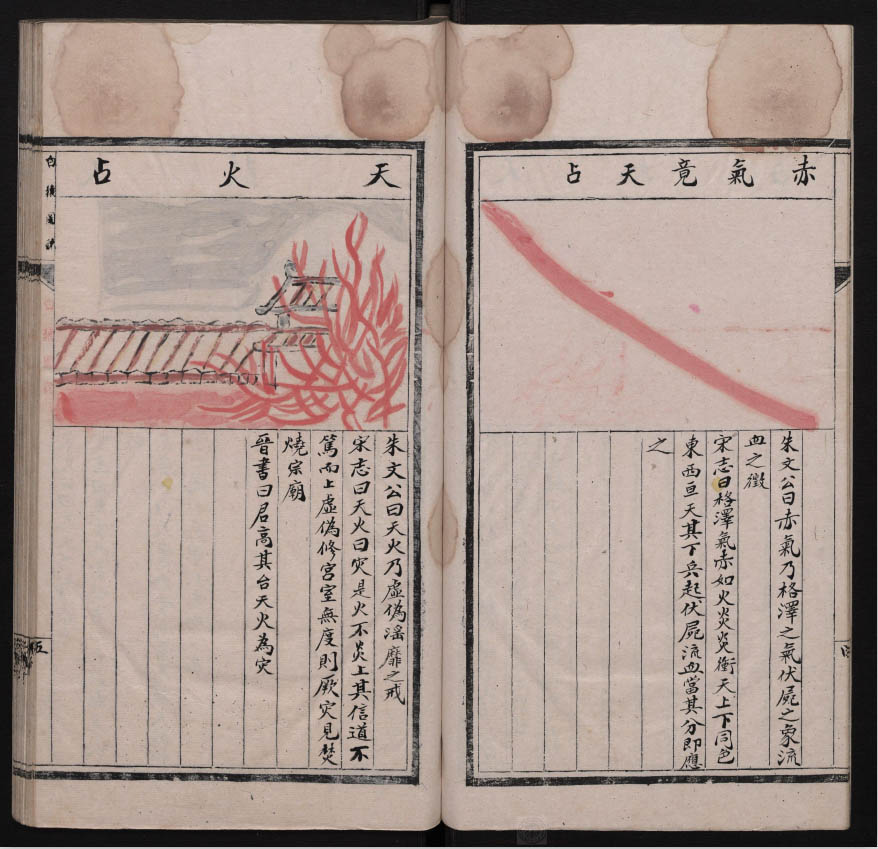 赤氣竟天占
朱文公曰赤氣乃格澤之氣伏屍之象流
血之徵
宋志曰格澤氣赤如火炎炎衝天上下同色
東西亘天其下兵起伏屍流血當其分即應
之
天火占
朱文公曰天火乃虛偽滛靡之戒
宋志曰天火曰灾是火不炎上其信道不
篤而上虛偽修宮室無度則厥灾見焚
燒宗廟
晉書曰君高其台天火為灾
五